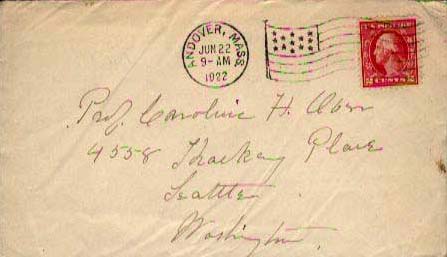 ANDOVER, MASS.
JUN 22
9-AM
1922
2 CENTS 2
Prof. Caroline H. Ober
4558 Thackeray Place
Seattle
Washington.